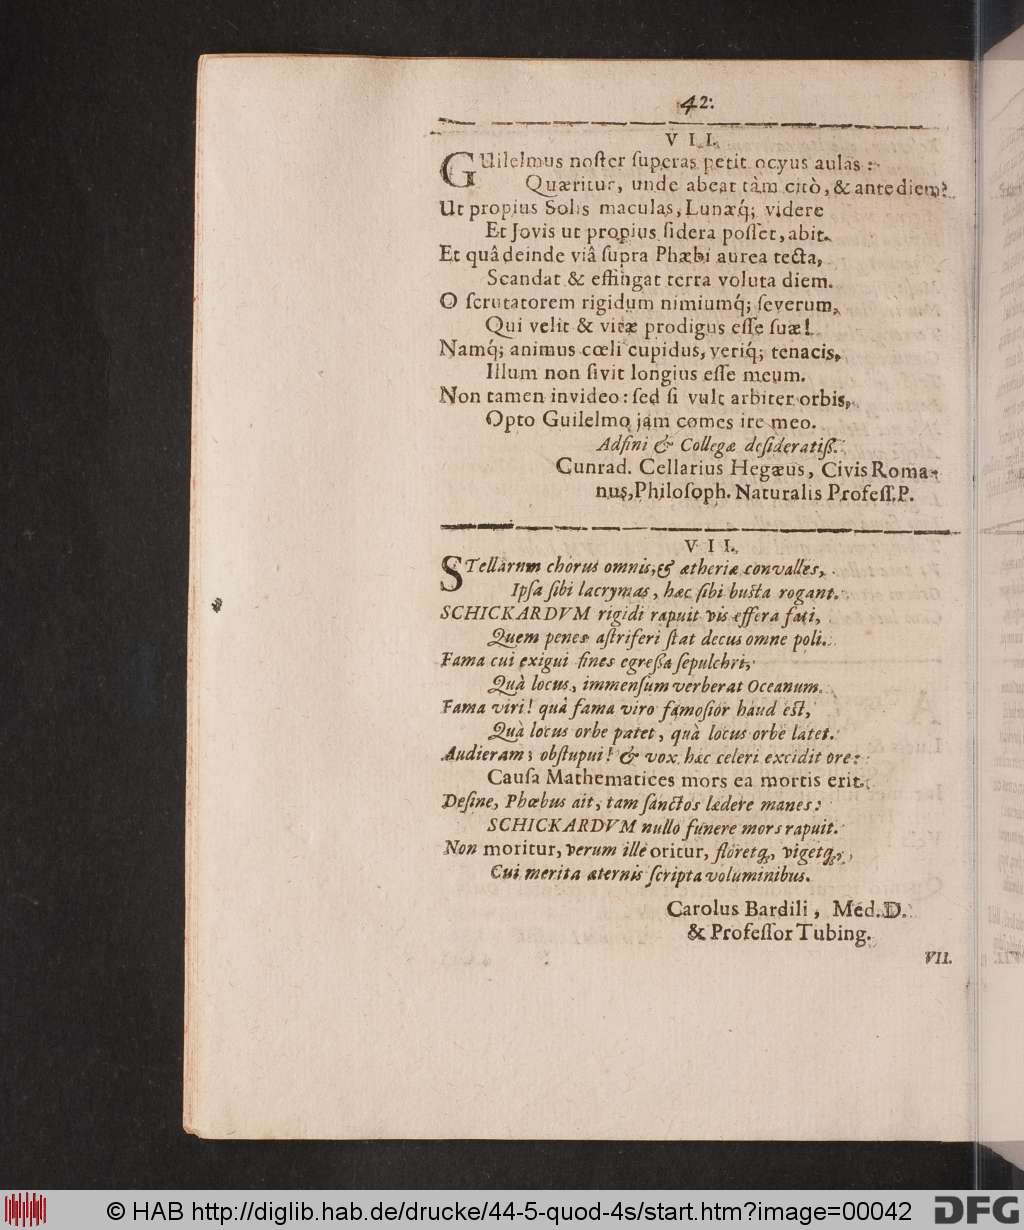 42.
VII.
GUilelmus noſter ſuperas petit ocyus aulas:
Quæritur, unde abeat tàm citò, & ante diem?
Ut propius Solis maculas, Lunæq́; videre
Et Jovis ut propius ſidera poſſet, abit.
Et quâ deinde viâ ſupra Phæbi aurea tecta,
Scandat & effingat terra voluta diem.
O ſcrutatorem rigidum nimiumq́; ſeverum,
Qui velit & vitæ prodigus eſſe ſuæ!
Namq́; animus cœli cupidus, veriq́; tenacis,
Illum non ſivit longius eſſe meum.
Non tamen invideo: ſed ſi vult arbiter orbis,
Opto Guilelmo jam comes ire meo.
Adfini & Collegæ deſideratiß.
Cunrad. Cellarius Hegæus, Civis Roma-
nus, Philoſoph. Naturalis Profeſſ. P.
VII.
STellarum chorus omnis, & ætheriæ convalles,
Ipſa ſibi lacrymas, hæc ſibi buſta rogant.
SCHICKARDVM rigidi rapuit vis effera fati,
Quem penes aſtriferi ſtat decus omne poli.
Fama cui exigui fines egreſſa ſepulchri,
Quà locus, immenſum verberat Oceanum.
Fama viri! quâ fama viro famoſior haud eſt,
Quà locus orbe patet, quà locus orbe latet.
Audieram; obſtupui! & vox hæc celeri excidit ore:
Cauſa Mathematices mors ea mortis erit.
Deſine, Phœbus ait, tam ſanctos lædere manes:
SCHICKARDVM nullo funere mors rapuit.
Non moritur, verum ille oritur, floretq́, vigetq́,
Cui merita æternis ſcripta voluminibus.
Carolus Bardili, Med. D.
& Profeſſor Tubing.
VII.
© HAB http://diglib.hab.de/drucke/44-5-quod-4s/start.htm?image=00042
DFG